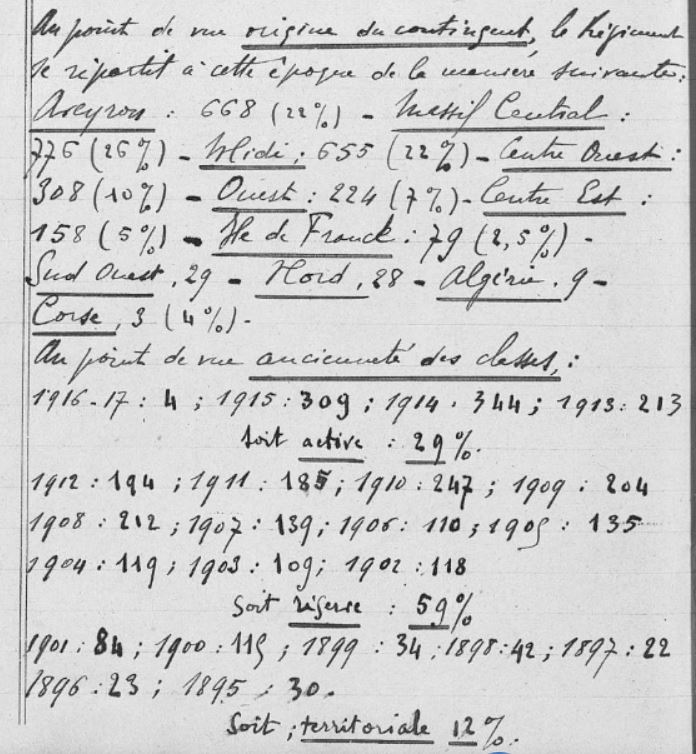 Au point de vue origine du contingent, le Régiment
se répartit à cette époque de la manière suivante :
Aveyron : 668 (22%) - Massif Central :
776 (26%) - Midi : 655 (22%) - Centre Ouest :
308 (10%) - Ouest : 224 (7%) - Centre Est :
158 (5%) - Ile de France : 79 (2,5%) -
Sud Ouest, 29 - Nord, 28 - Algérie. 9 -
Corse, 3 (4%) -
Au point de vue ancienneté des classes, :
1916-17 : 4 ; 1915 : 309 ; 1914 . 344 ; 1913 : 213
Soit active : 29%.
1912 : 194 ; 1911 : 185 ; 1910 : 247 ; 1909 : 204
1908 : 212 ; 1907 : 139 ; 1906 : 110 ; 1905 : 135
1904 : 119 ; 1903 : 109 ; 1902 : 118
Soit réserve : 59%
1901 : 84 ; 1900 : 115 ; 1899 : 34 ; 1898 : 42 ; 1897 : 22
1896 : 23 ; 1895 : 30.
Soit ; territoriale 12%.